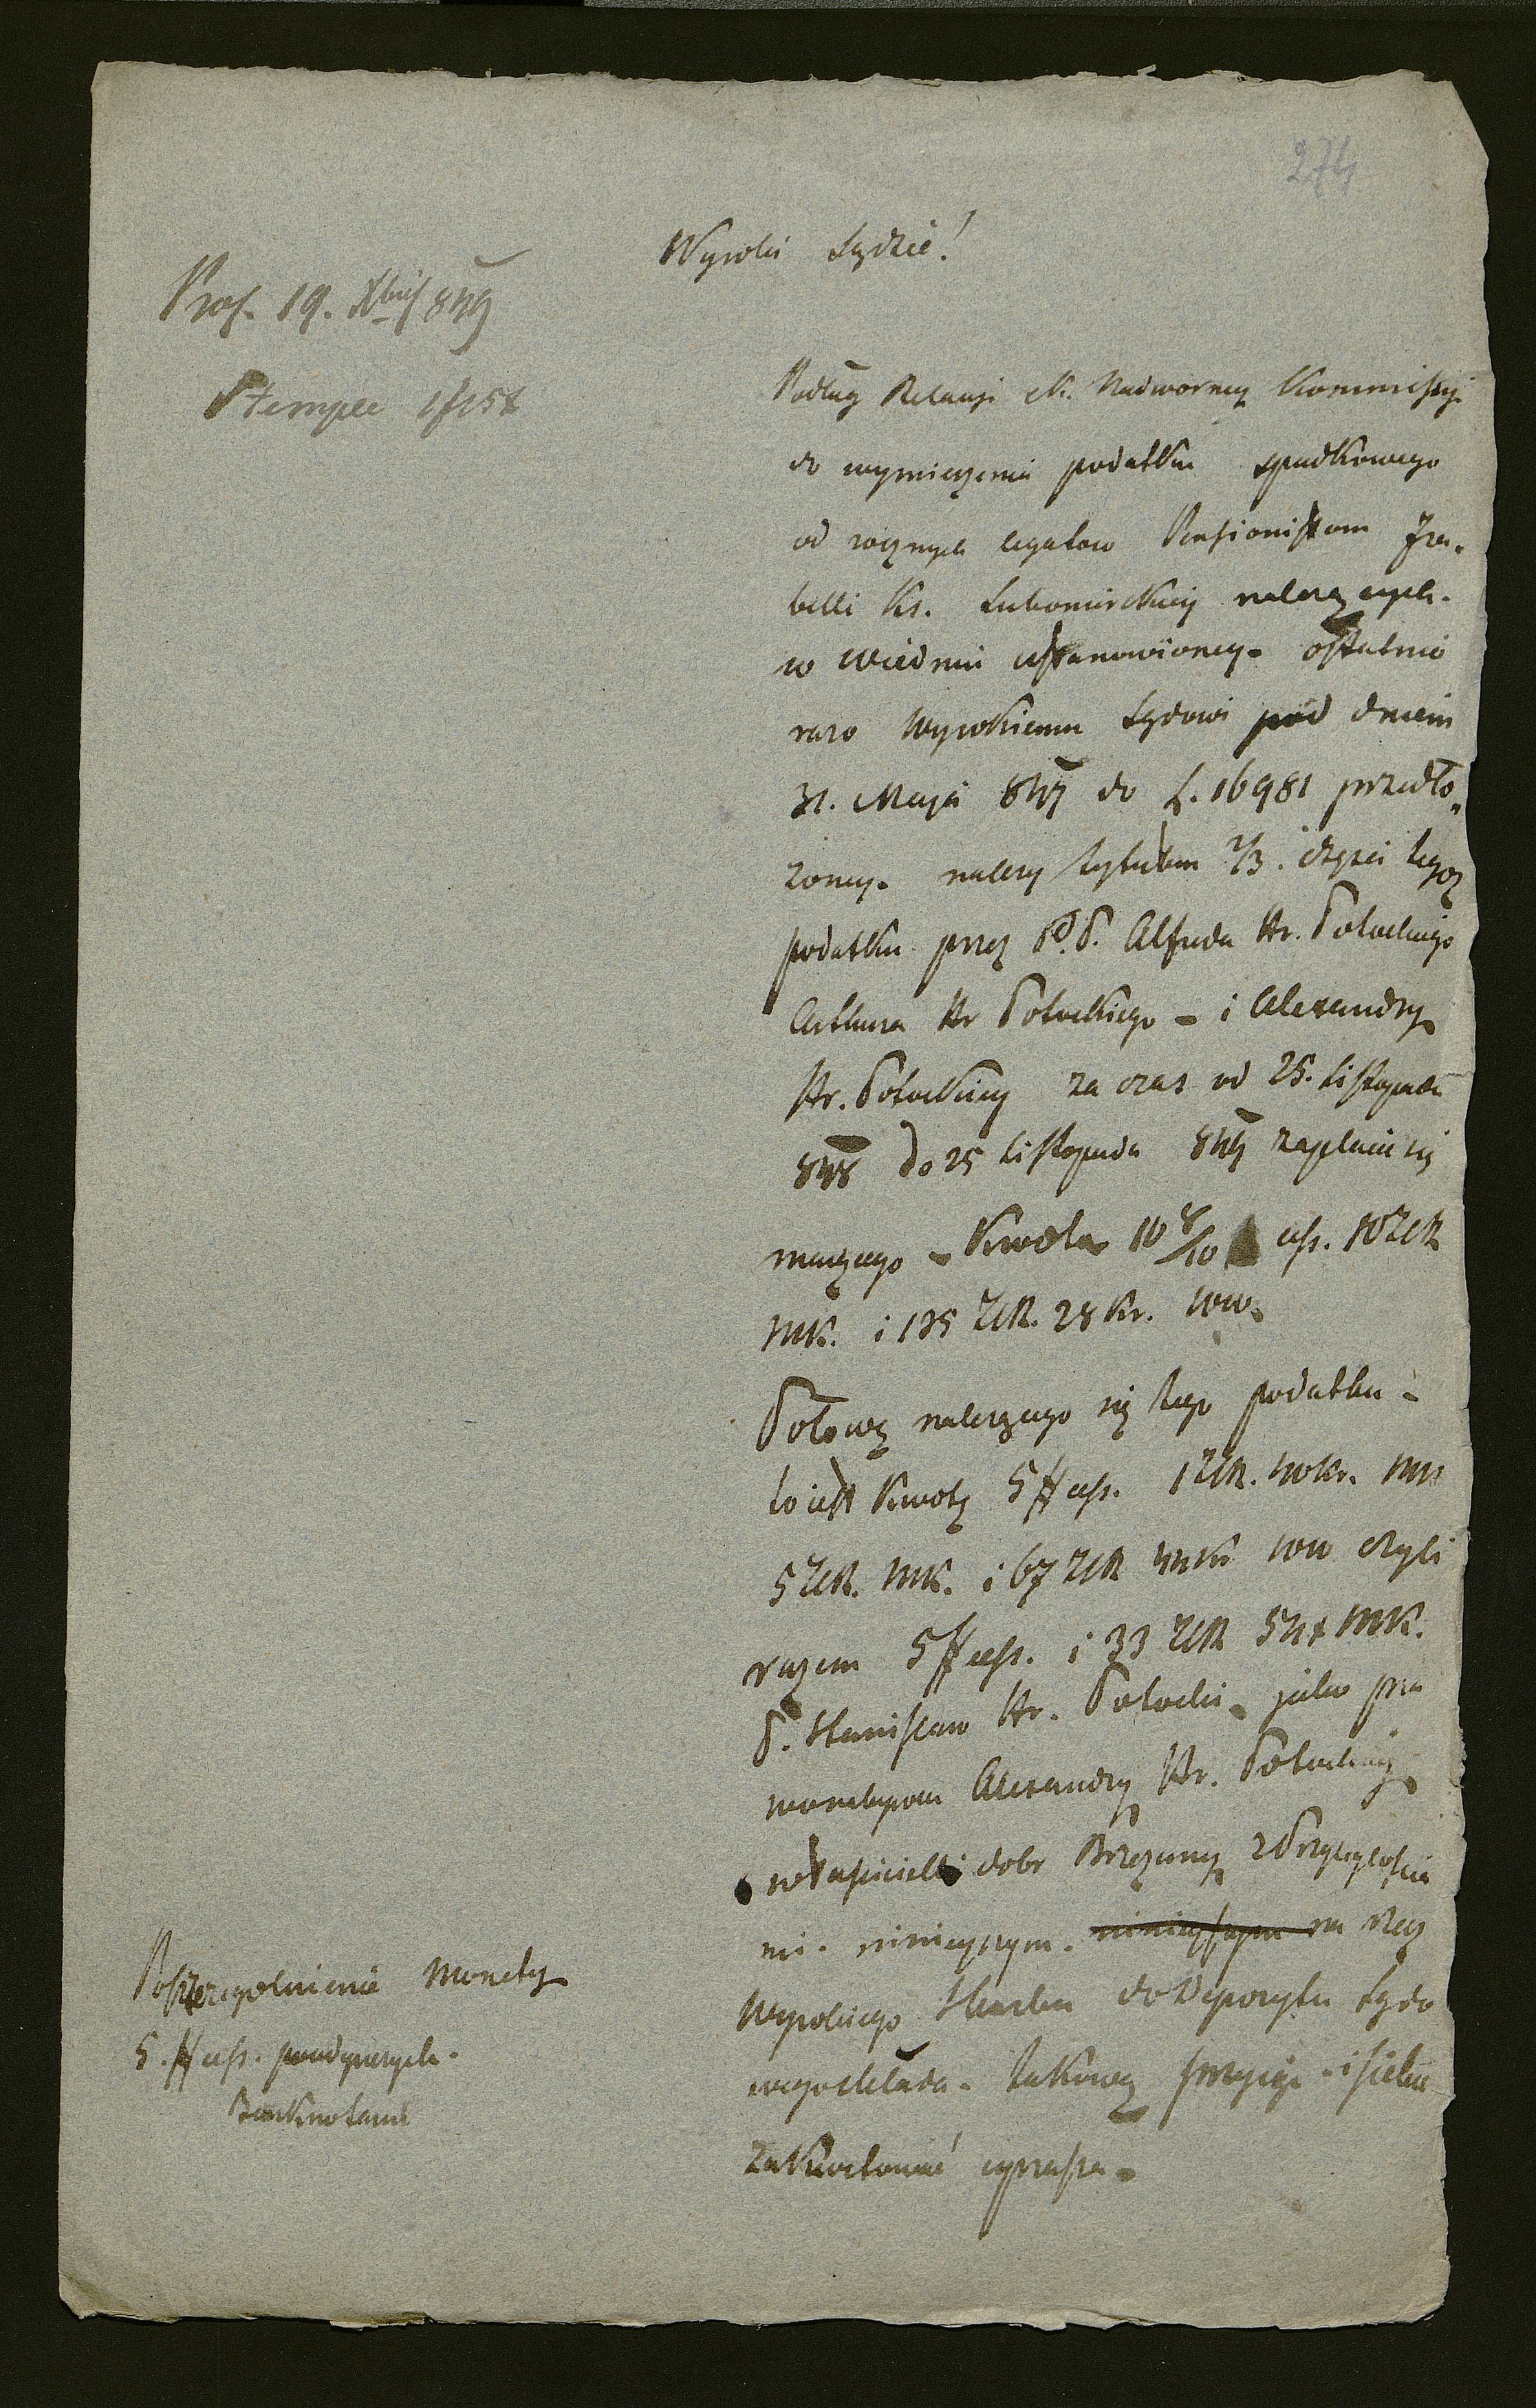 274
Wysoki Sądzie!
Pras. 19. Xbris 849
Stempel 1f15x
Podług Relacji ck. Nadworney Kommissyi
do wymierzenia podatku spadkowego
od rocznych legatow Pensionistom Iza-
belli Ks. Lubomirskiey należących-
w Wiedniu ustanowioney- ostatnio
razo Wysokiemu Sądowi pod dniem
31. Maja 847 do L. 16981 przedło-
żoney- należy tytułem 2/3. części tegoż
podatku przez P.P. Alfreda Hr. Potockiego
Artura Hr Potockiego - i Alexandry
Hr. Potockiey za czas od 25. Listopada
848 do 25 Listopada 849 zapłacić się
maiącego - Kwota 10 /10 ces. 10 ZłR
MK. i 135 ZłR. 28 Kr. WW.
Połowę należącego się tego podatku -
to iest Kwotę 5 # ces. 1 ZłR. 40kr. MK
5 ZłR. MK. i 67 ZłR 44Kr WW czyli
razem 5 # ces. i 33 ZłR 54x MK.
P. Stanisław Hr. Potocki - jako pra
wonabywca Alexandry Hr. Potockiey
właścicielki dobr Brzeżany z Przyległościa
mi- ninieyszym- ninieyszym na rzecz
Wysokiego Skarbu do Depozytu Sądo
wego składa- takowy przyiąć - i siebie
zakwitować uprasza-
Poszczegolnienie Monety
5. # ces. poiedynczych-
Banknotami